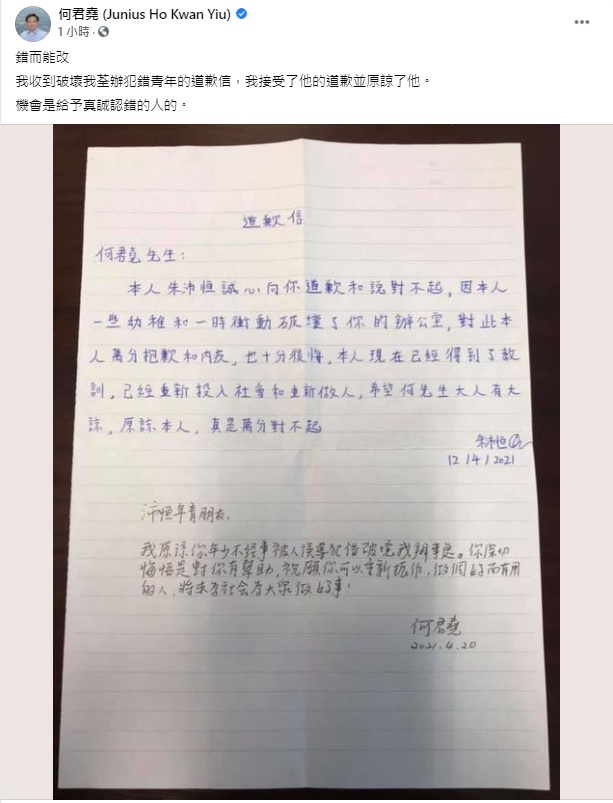 何君堯 (Junius Ho Kwan Yiu)
1 小時 ·
錯而能改
我收到破壞我荃辦犯錯青年的道歉信，我接受了他的道歉並原諒了他。
機會是給予真誠認錯的人的。
道歉信
何君堯先生：
本人朱沛恒誠心向你道歉和說對不起，因本人
一些幼稚和一時衝動破壞了你的辦公室，對此本
人萬分抱歉和內疚，也十分後悔，本人現在已經得到了教
訓，已經重新投入社會和重新做人，希望何先生大人有大
諒，原諒本人，真是萬分對不起
12/4/2021
沛恒年青朋友，
我原諒你年少不經事被人誤導犯錯破壞我辦事處。你深切
悔悟是對你有幫助，祝願你可以重新振作，做個好而有用
的人，將來為社會為大眾做好事！
何君堯
2021.4.20